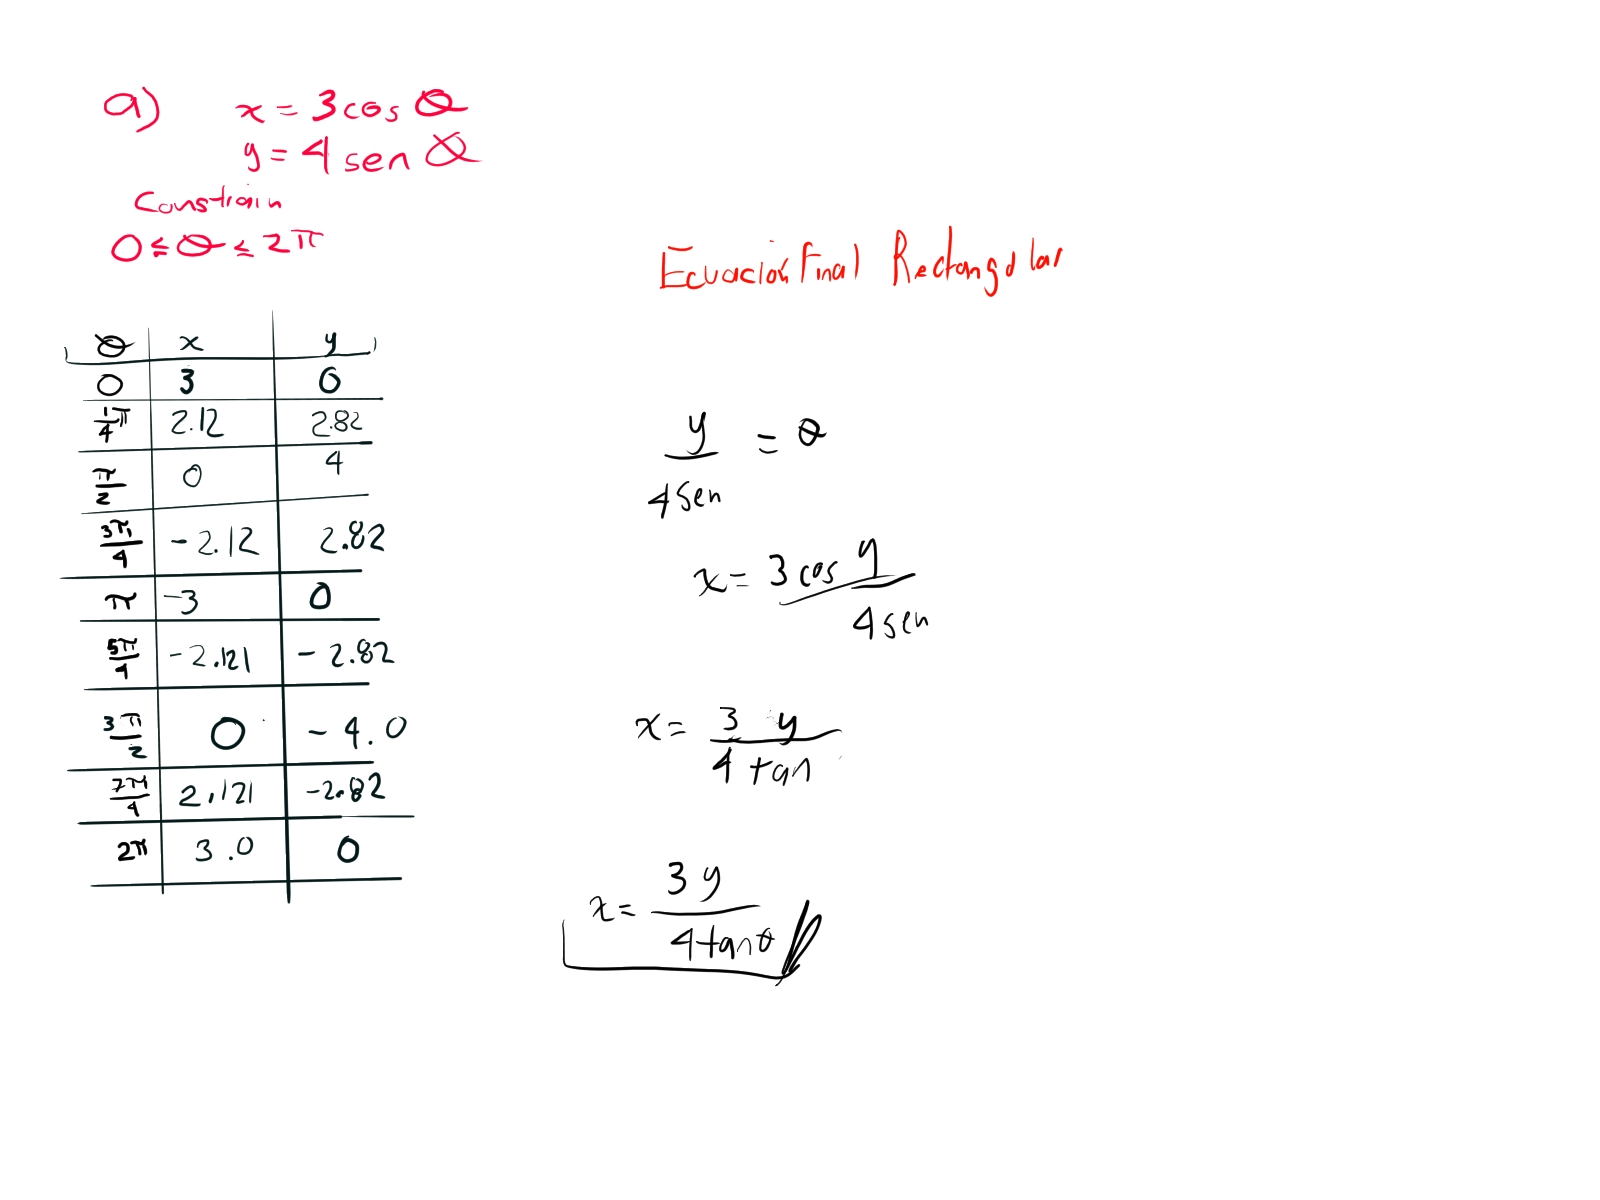 a) x = 3 cos θ
y = 4 sen θ
Constrain
0 ≤ θ ≤ 2π
θ x y
0 3 0
1/4 π 2.12 2.82
π/2 0 4
3π/4 -2.12 2.82
π -3 0
5π/4 -2.121 -2.82
3π/2 0 -4.0
7π/4 2.121 -2.82
2π 3.0 0
Ecuación Final Rectangular
y/4 sen = θ
x = 3 cos y/4 sen
x = 3 y/4 tan
x = 3 y/4 tan θ